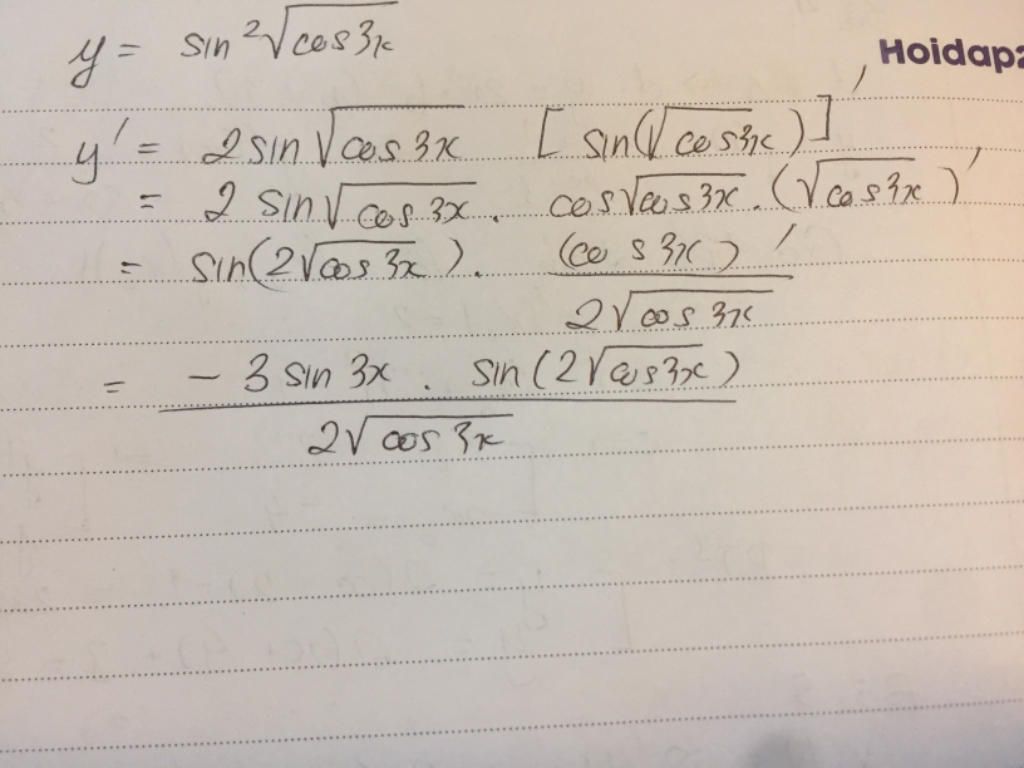 y = sin²√(cos 3x)
Hoidap2
y' = 2 sin √(cos 3x) [sin(√(cos 3x))]'
= 2 sin √(cos 3x) . cos √(cos 3x) . (√(cos 3x))'
= sin(2√(cos 3x)) . (cos 3x)' / 2√(cos 3x)
= - 3 sin 3x . sin(2√(cos 3x)) / 2√(cos 3x)